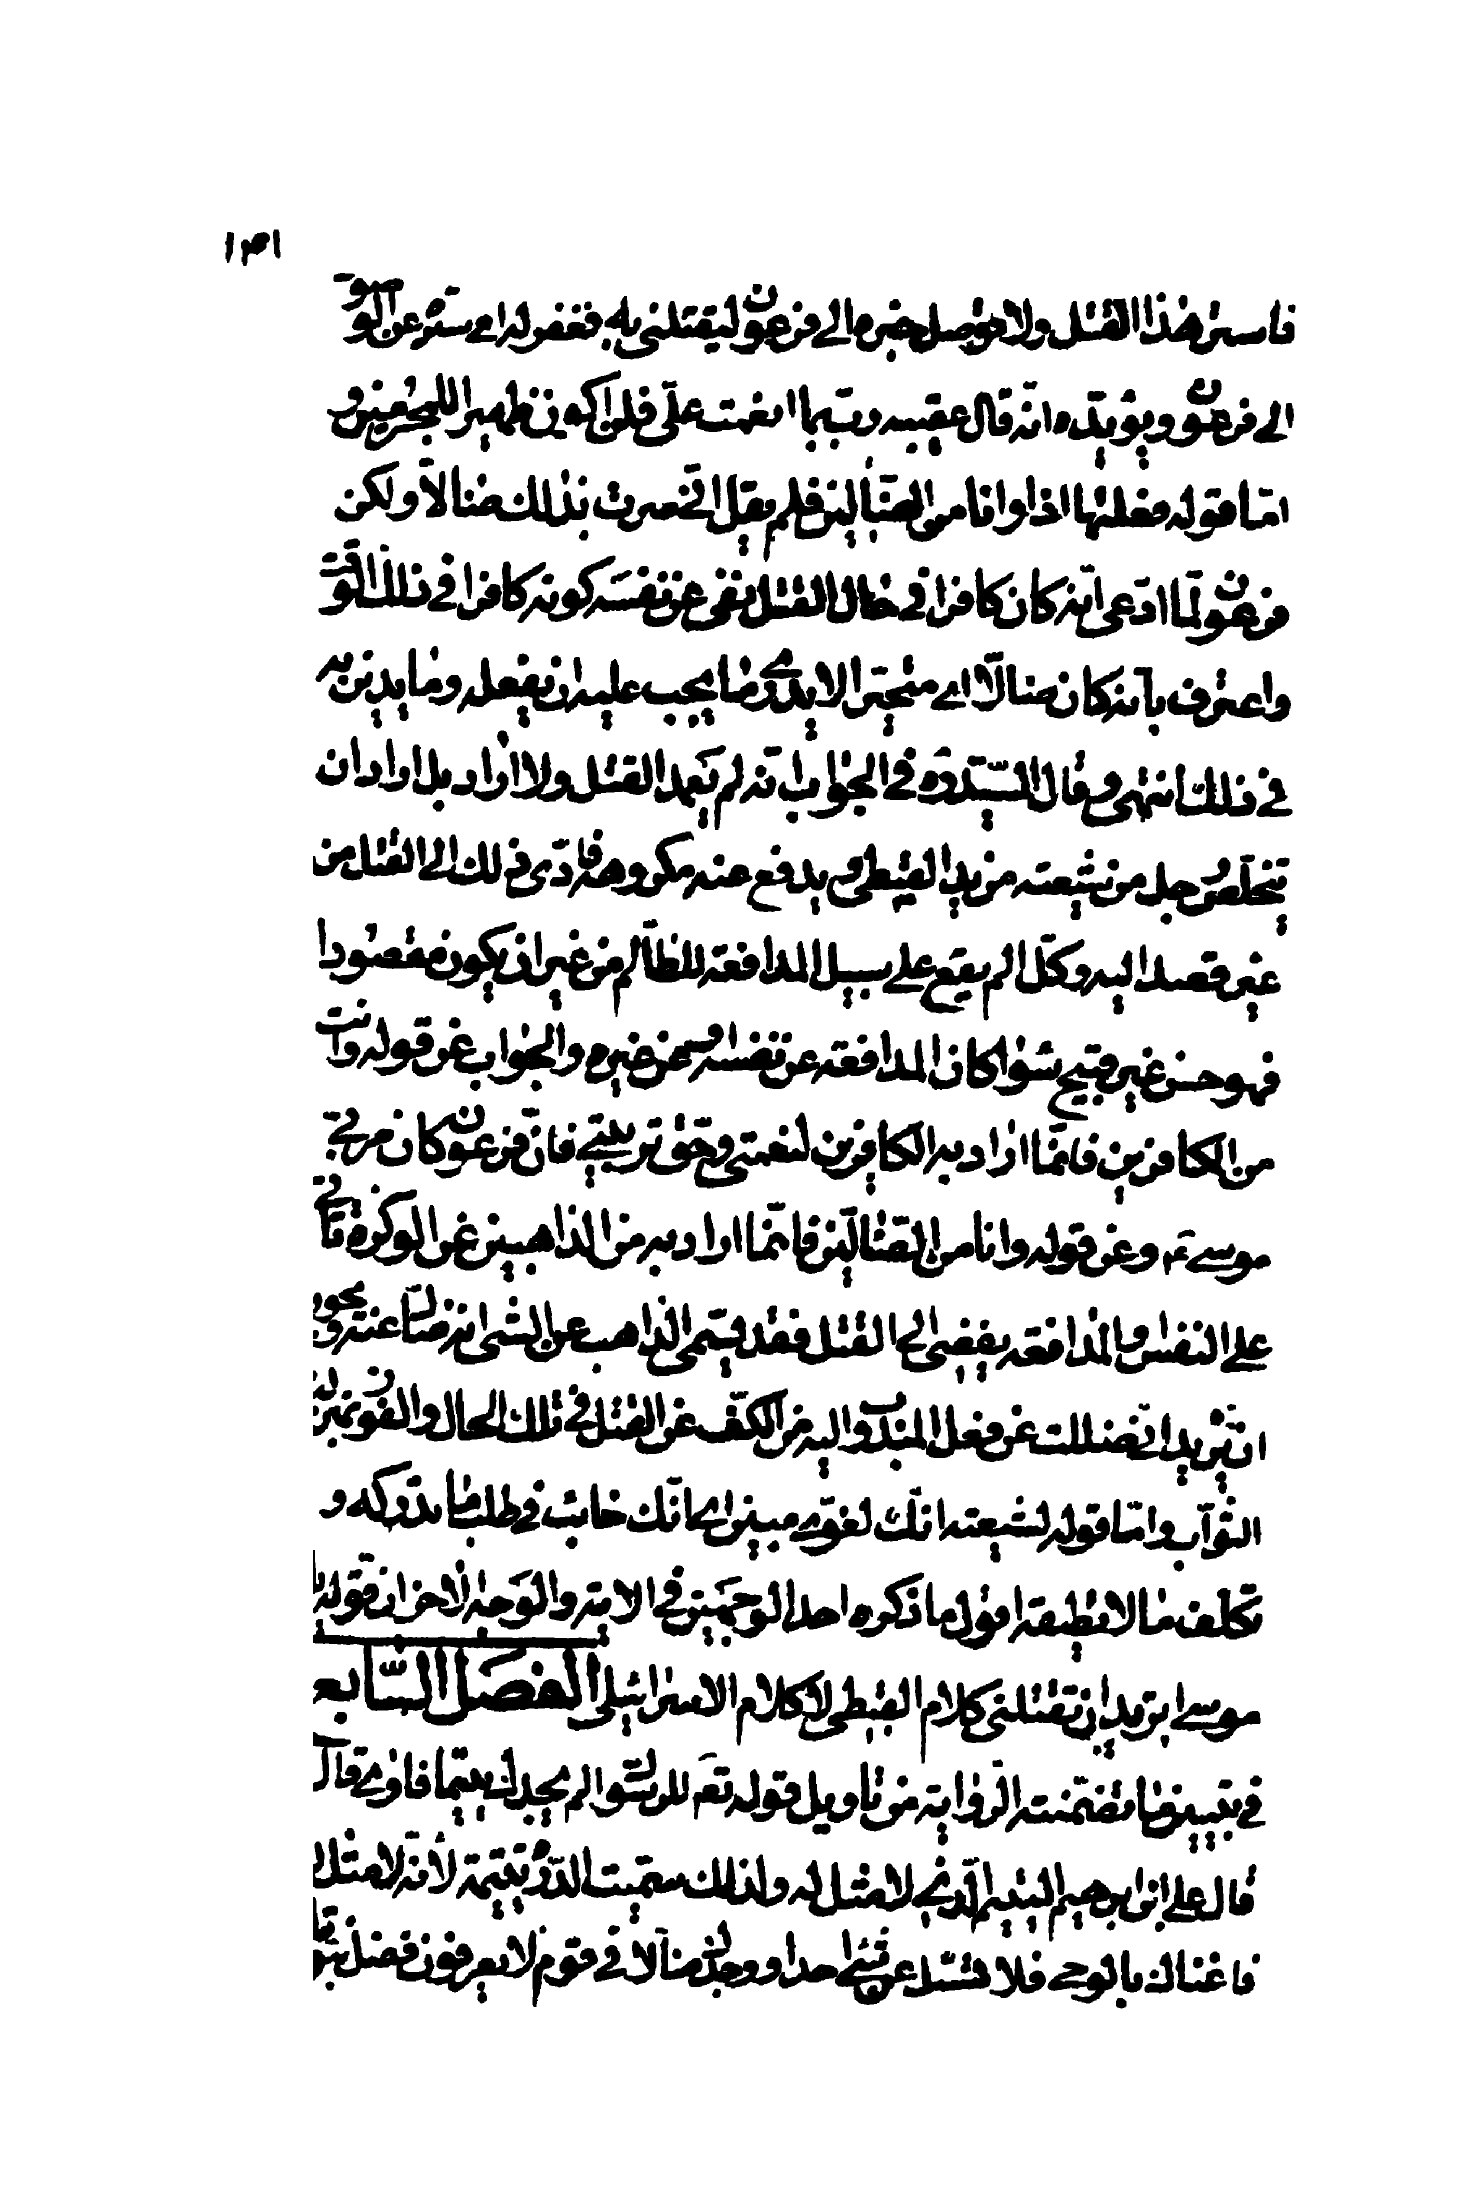 فاستر هذا القتل ولا توصل خبره الى فرعون ليقتلنى به فغفر له اى ستر عن الوصول
الى فرعون ويؤيده انه قال عقيبه رب بما انعمت علىّ فلن اكون ظهيرا للمجرمين و
امّا قوله فعلتها اذا وانا من الضّالين فلم يقل انّى صرت بذلك ضالّا ولكن
فرعون لمّا ادّعى انّه كان كافرا فى حال القتل نفى عن نفسه كونه كافرا فى ذلك الوقت
واعترف بانّه كان ضالّا اى متحيّرا لا يدرى ما يجب عليه ان يفعله وما يدين به
فى ذلك انتهى وقال السّيد ره فى الجواب انّه لم يتعمد القتل ولا اراده بل اراد ان
يتخلّص رجل من شيعته من يد القبطى ويدفع عنه مكروهه فادّى ذلك الى القتل من
غير قصد اليه وكلّ الم يقع على سبيل المدافعة للظّالم من غير ان يكون مقصودا
فهو حسن غير قبيح سواء كان المدافعة عن نفسه او عن غيره والجواب عن قوله وانت
من الكافرين فانّما اراد به الكافرين لنعمتى وحق تربيتى فانّ فرعون كان مربّى
موسى ع وعن قوله وانا من الضّالّين فانّما اراد به من الذاهبين عن الوكزة تأتى
على النفس والمدافعة يفضى الى القتل فقد يسمى الذاهب عن الشى انه ضالّ عنه ويجوز
ان يريد انّى ضللت عن فعل المندوب اليه من الكفّ عن القتل فى تلك الحال والفوز بمنزلة
الثّواب وامّا قوله لشيعته انّك لغوىّ مبين اى انّك خائب فى طلب ما تدركه و
تكلف ما لا تطيقه اقول ما ذكره احد الوجهين فى الاية والوجه الاخر ان قوله يا
موسى اتريد ان تقتلنى كلام القبطى لا كلام الاسرائيلى الفصل السّابع
فى تبيين ما تضمنته الرواية من تاويل قوله تعم للرسول الم يجدك يتيما فاوى قال
قال على ابن ابرهيم اليتيم الّذى لا مثل له ولذلك سمّيت الدّرّة يتيمة لأنّه لا مثل لها
فاغناك بالوحى فلا تسئل عن شئ احدا ووجدك ضالّا فى قوم لا يعرفون فضل نبوتك